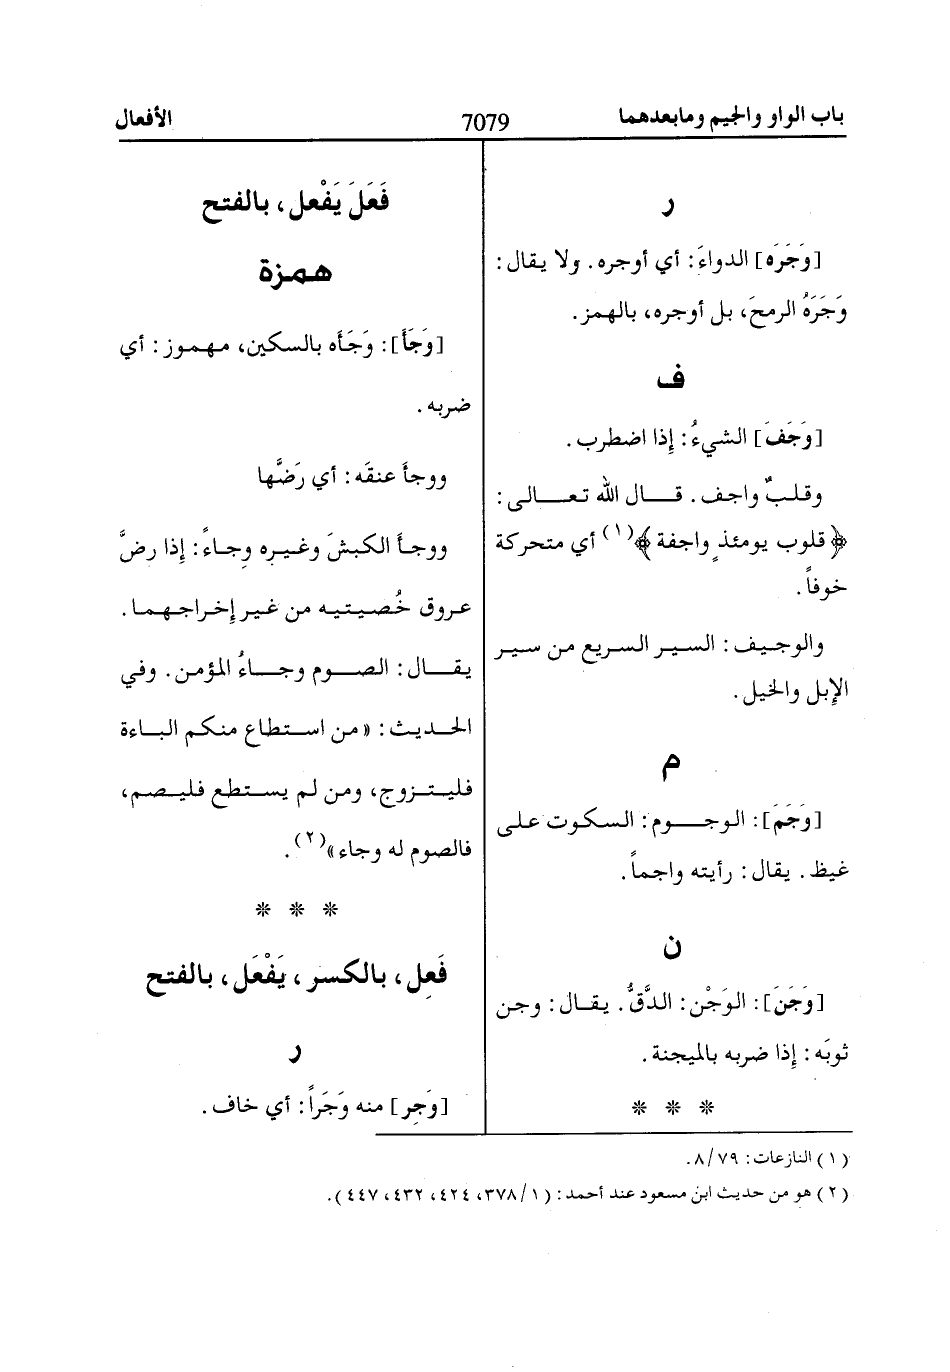 باب الواو والجيم ومابعدهما
7079
الأفعال
ر
[وَجَرَه] الدواءَ: أي أوجره. ولا يقال:
وَجَرَهُ الرمحَ، بل أوجره، بالهمز.
ف
[وَجَفَ] الشيءُ: إذا اضطرب.
وقلبٌ واجف. قال الله تعالى:
﴿قلوب يومئذٍ واجفة﴾(١) أي متحركة
خوفاً.
والوجيف: السير السريع من سير
الإبل والخيل.
م
[وَجَمَ]: الوجوم: السكوت على
غيظ. يقال: رأيته واجماً.
ن
[وَجَنَ]: الوَجْن: الدَّقُّ. يقال: وجن
ثوبَه: إذا ضربه بالميجنة.
* * *
فَعَلَ يَفْعل، بالفتح
همزة
[وَجَأَ]: وَجَأه بالسكين، مهموز: أي
ضربه.
ووجأ عنقَه: أي رَضَّها
ووجأ الكبشَ وغيره وِجاءً: إذا رضَّ
عروق خُصيتيه من غير إخراجهما.
يقال: الصوم وجاءُ المؤمن. وفي
الحديث: «من استطاع منكم الباءة
فليتزوج، ومن لم يستطع فليصم،
فالصوم له وجاء»(٢).
* * *
فَعِل، بالكسر، يَفْعَل، بالفتح
ر
[وَجِر] منه وَجَراً: أي خاف.
(١) النازعات: ٧٩/ ٨.
(٢) هو من حديث ابن مسعود عند أحمد: (١/ ٣٧٨، ٤٢٤، ٤٣٢، ٤٤٧).